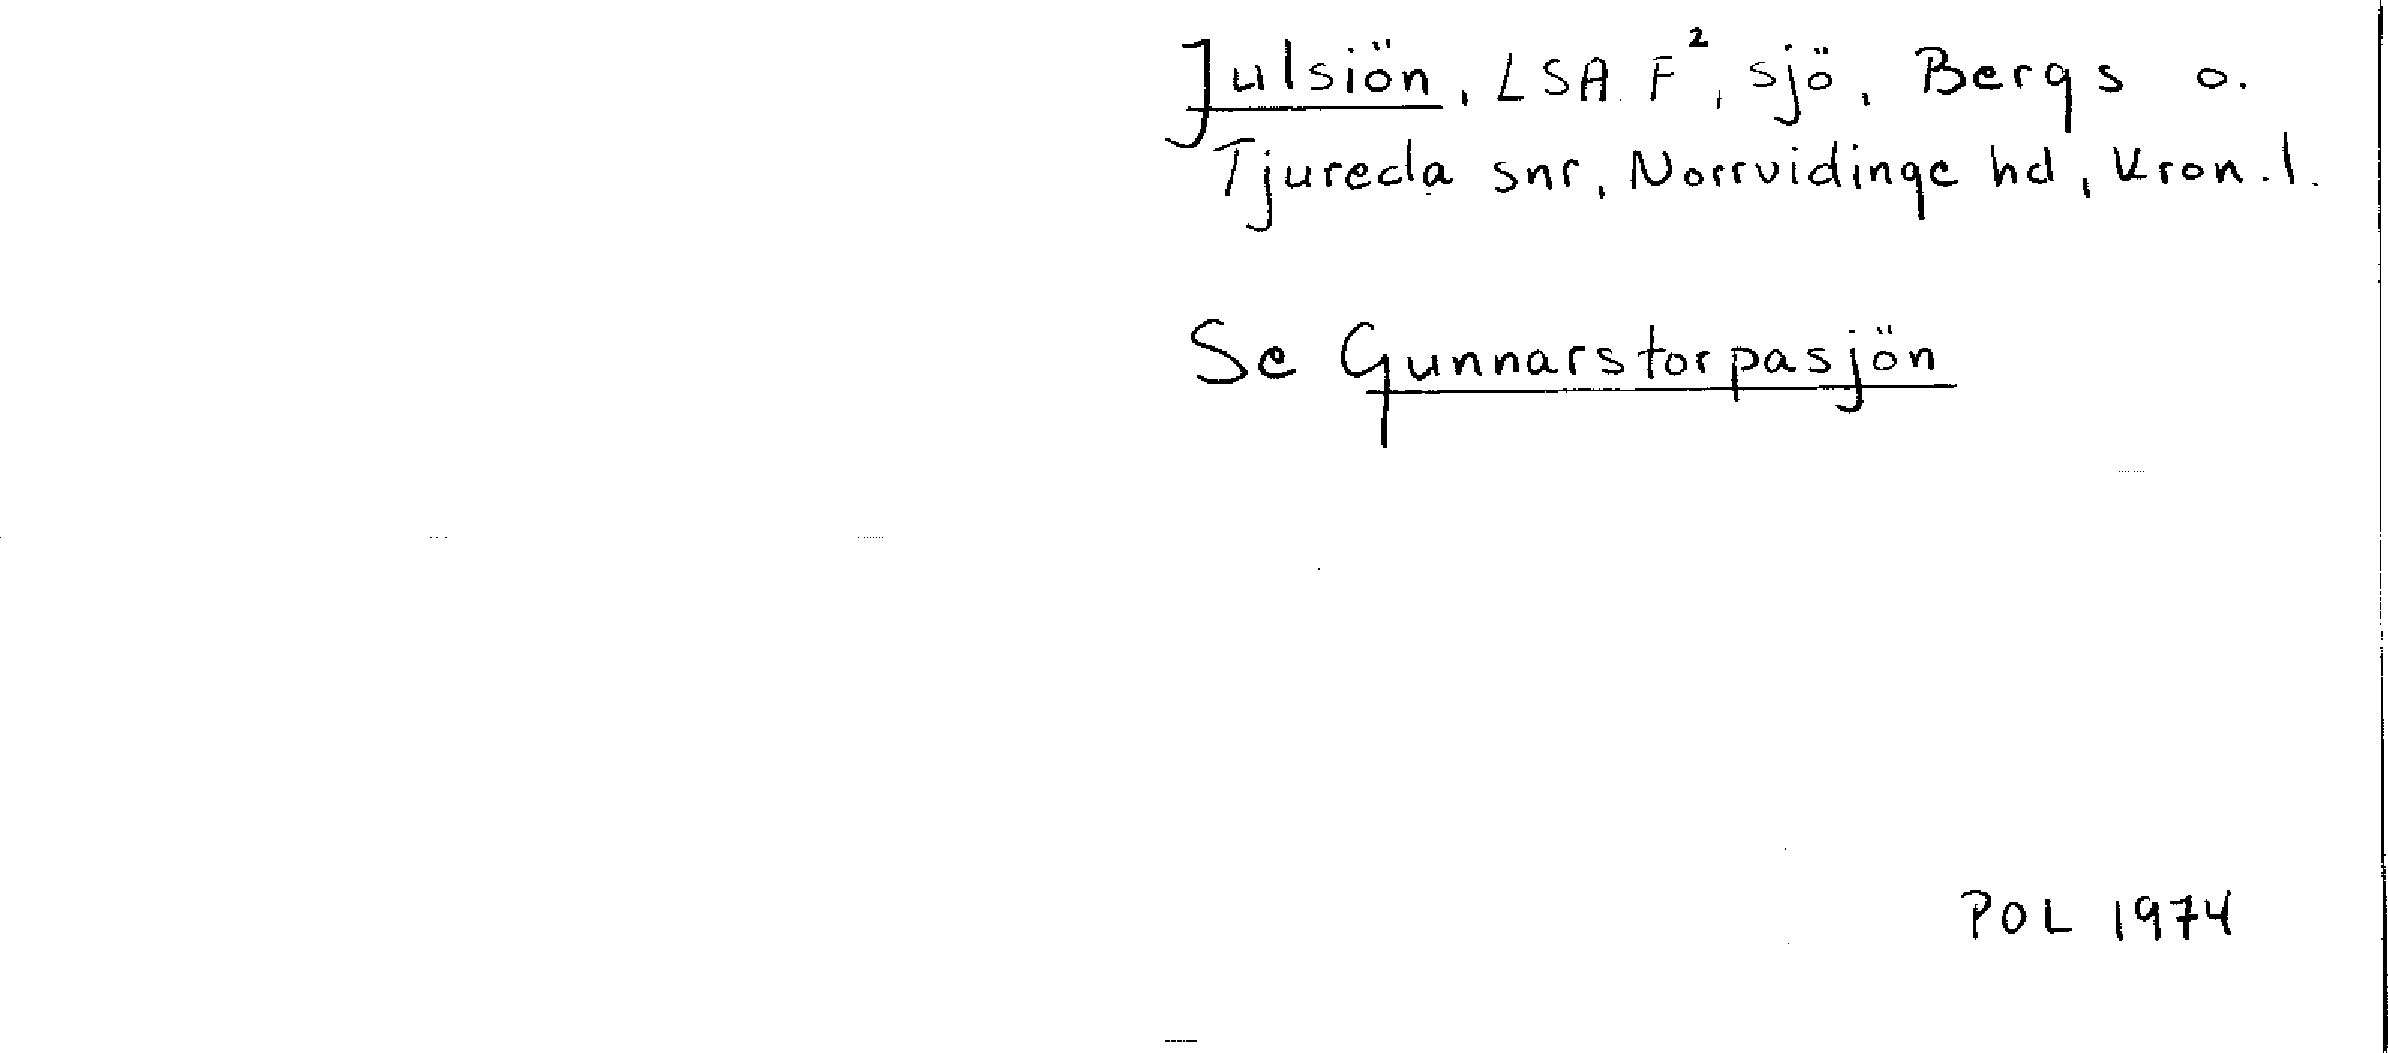 Julsiön, LSA F², sjö, Bergs o.
Tjureda snr, Norrvidinge hd, Kron. l.
Se Gunnarstorpasjön
POL 1974